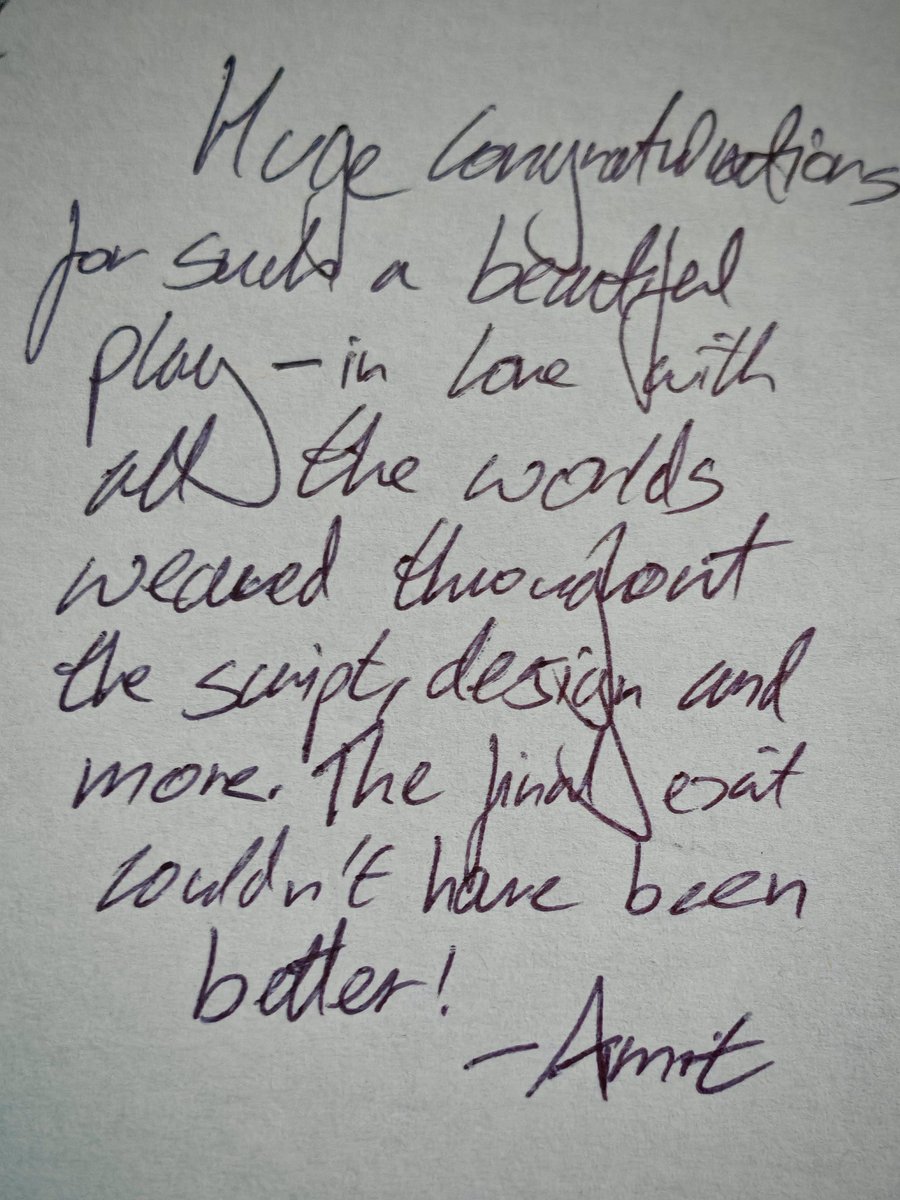 Huge Congratulations
for such a beautiful
play - in love with
all the worlds
weaved throughout
the script, design and
more. The final exit
couldn't have been
better!
- Amrit